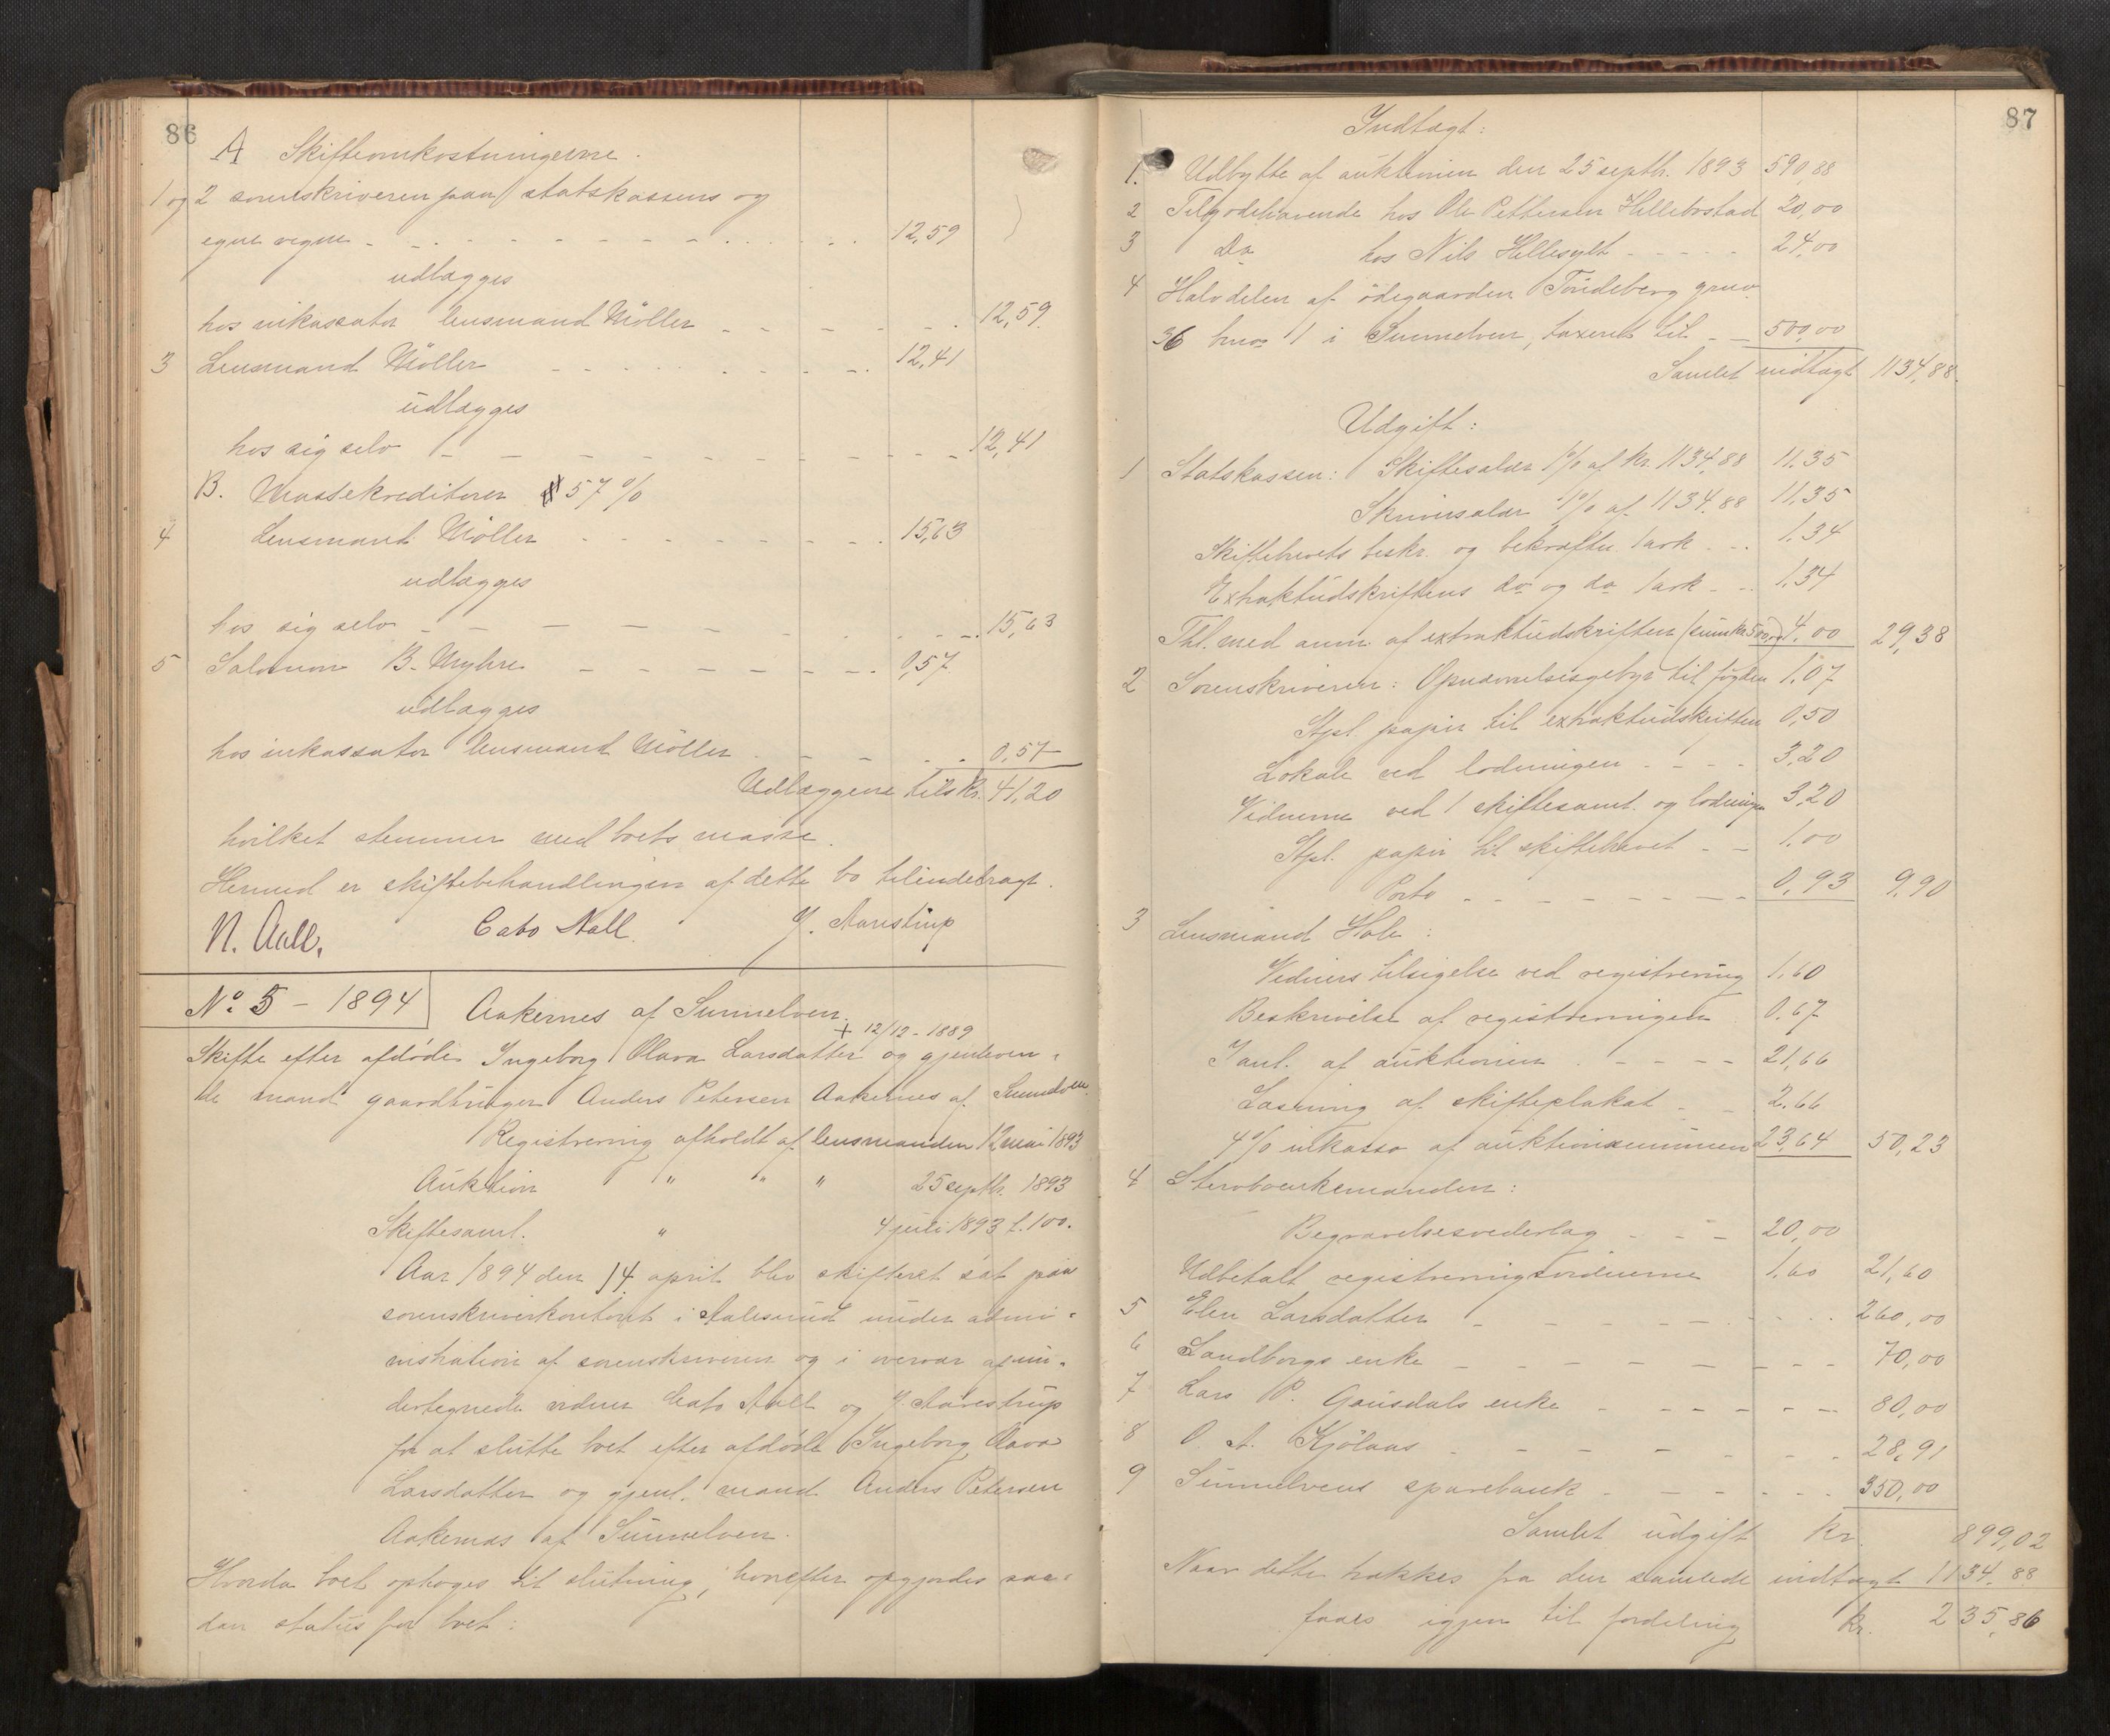 86
A Skifteomkostningerne.
1 og 2 sorenskriveren paa statskassens og
egne vegne - - - 12,59
udlægges
hos inkassator lensmand Möller - - - 12,59.
3 Lensmand Möller - - - 12,41
udlægges
hos sig selv - - - 12,41
B. Massekreditorer 57 %
4 Lensmand Möller - - - 15,63
udlægges
hos sig selv - - - 15,63
5 Salomon B. Myhre - - - 0,57.
udlægges
hos inkassator lensmand Möller - - - 0,57
Udlæggene tils Kr. 41,20
hvilket stemmer med boets masse.
Hermed er skiftebehandlingen af dette bo tilendebragt.
N. Aall. Cato Aall. J. Aarestrup
No. 5 - 1894 Aakernes af Sunnelven.
+ 12/12 - 1889
Skifte efter afdöde Ingeborg Olava Larsdatter og gjenleven-
de mand gaardbruger Anders Petersen Aakernes af Sunnelven.
Registrering afholdt af lensmanden 12 mai 1893
Auktion " " " 25 septbr. 1893
Skiftesaml. " 4 juli 1893 f. 100.
Aar 1894 den 14. april blev skifteret sat paa
sorenskriverkontoret i Aalesund under admi-
nistration af sorenskriveren og i overvær af un-
dertegnede vidner Cato Aall og J. Aarestrup
for at slutte boet efter afdöde Ingeborg Olava
Larsdatter og gjenl. mand Anders Petersen
Aakernes af Sunnelven.
Hvorda boet optoges til slutning, hvorefter opgjordes saa-
dan status for boet:
87
Indtægt:
1. Udbytte af auktionen den 25 septbr. 1893 590,88
2 Tilgodehavende hos Ole Pettersen Hellebostad 20,00
3 Do hos Nils Hellesylt - - - 24,00
4 Halvdelen af ödegaarden Töndeberg gno.
36 bno. 1 i Sunnelven, taxeret til - - 500,00
Samlet indtægt 1134,88.
Udgift:
1 Statskassen: Skiftesalær 1% af Kr. 1134,88 11,35
Skriversalær 1% af 1134,88 11,35
Skiftebrevets beskr. og bekræftn. 1 ark - - 1,34
Extraktudskriftens do og do 1 ark - - 1,34
Thl. med anm. af extraktudskriften (sum kr. 500,00) 4,00 29,38
2 Sorenskriveren: Opnævnelsesgebyr til fogden 1,07
Stpl. papir til extraktudskriften 0,50
Lokale ved lodningen - - - 3,20
Vidnerne ved 1 skiftesaml. og lodningen 3,20
Stpl. papir til skiftebrevet - - 1,00
Porto - - - 0,93 9,90
3 Lensmand Hole:
Vidners tilsigelse ved registrering 1,60
Beskrivelse af registreringen 0,67
Saml. af auktionen - - - 21,66
Læsning af skifteplakat - - 2,66
4% inkasso af auktionssummen 23,64 50,23
4 Stervboenkemanden:
Begravelsesvederlag - - - 20,00
Udbetalt registreringsvidnerne 1,60 21,60
5 Elen Larsdatter - - - 260,00
6 Landborgs enke - - - 70,00
7 Lars P. Gausdals enke - - - 80,00
8 O. A. Kjölaas - - - 28,91
9 Sunnelvens sparebank - - - 350,00
Samlet udgift Kr. 899,02
Naar dette trækkes fra den samlede indtægt 1134,88
faaes igjen til fordeling Kr. 235,86